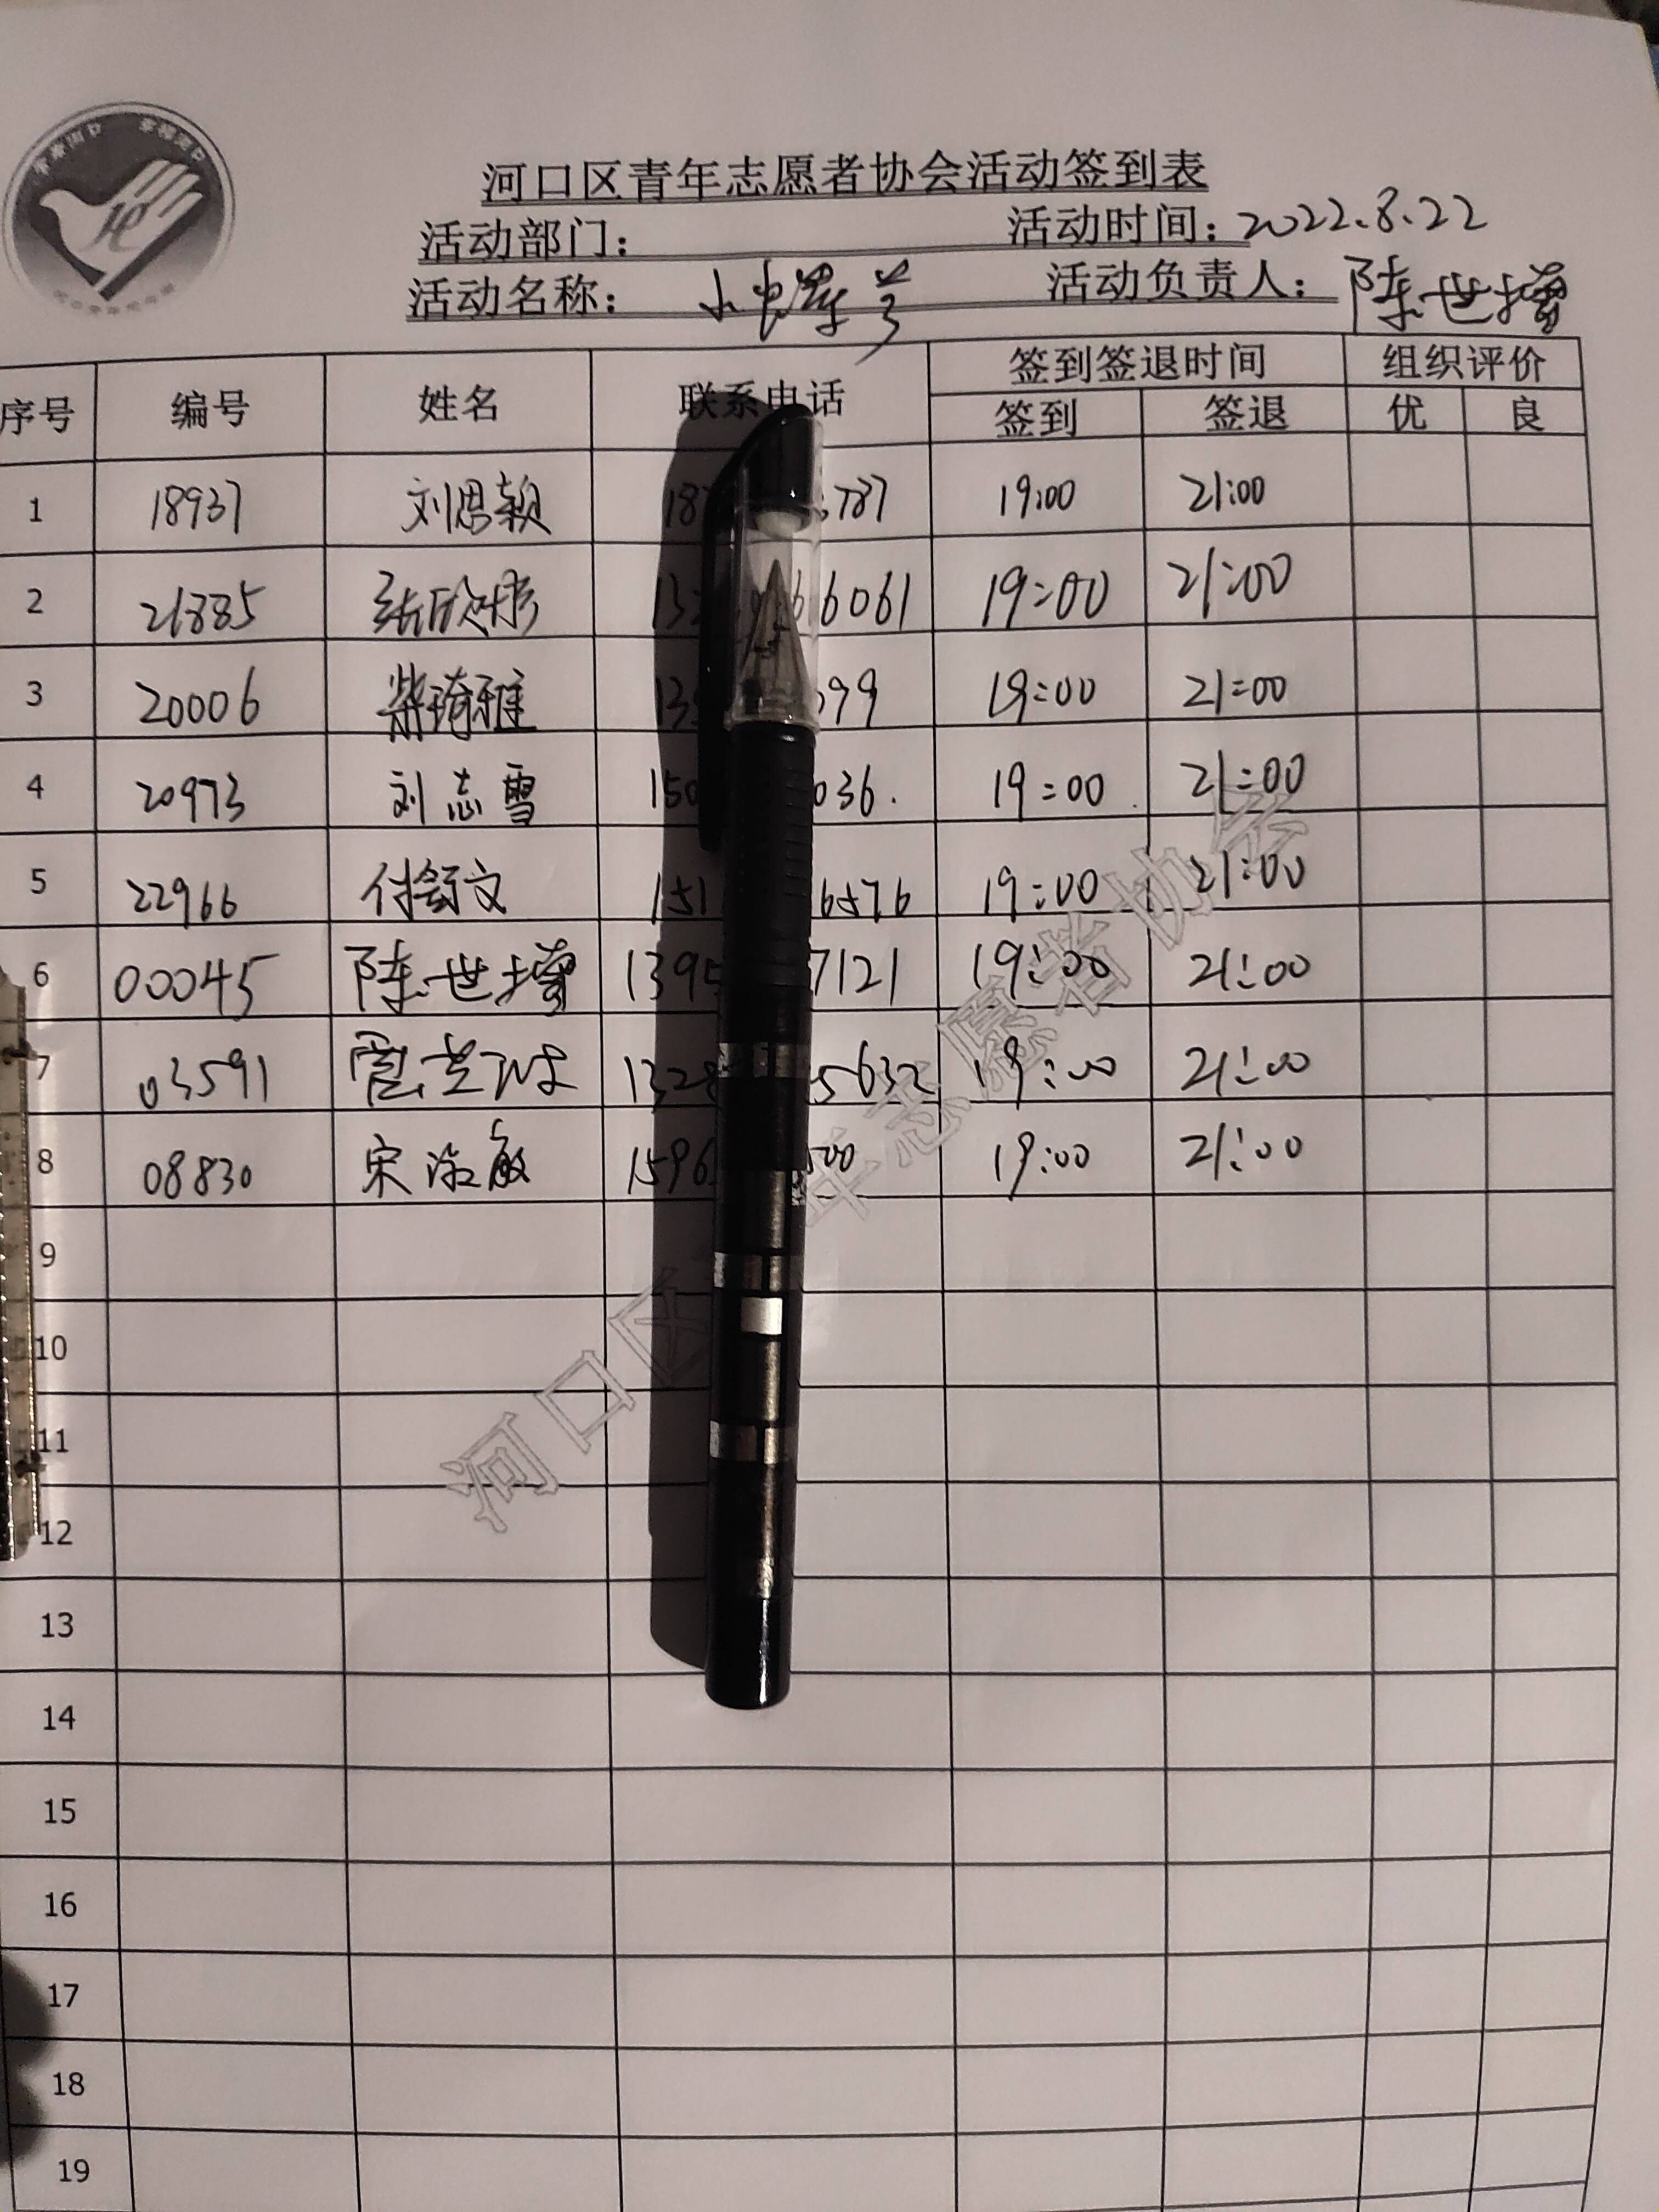 河口区青年志愿者协会活动签到表
活动部门： 活动时间：2022.8.22
活动名称： 活动负责人：陈世增
序号 编号 姓名 联系电话 签到签退时间 组织评价
签到 签退 优 良
1 18937 刘思颖 187 787 19:00 21:00
2 21885 张欣彤 13 66061 19:00 21:00
3 20006 柴琦雅 13 99 19:00 21:00
4 20973 刘志雪 150 036. 19:00 21:00
5 22966 付舒文 151 6576 19:00 21:00
6 00045 陈世增 1395 7121 19:00 21:00
7 03591 1328 5632 19:00 21:00
8 08830 宋淑敏 1596 500 19:00 21:00
9
10
11
12
13
14
15
16
17
18
19
河口区 年志愿者协会